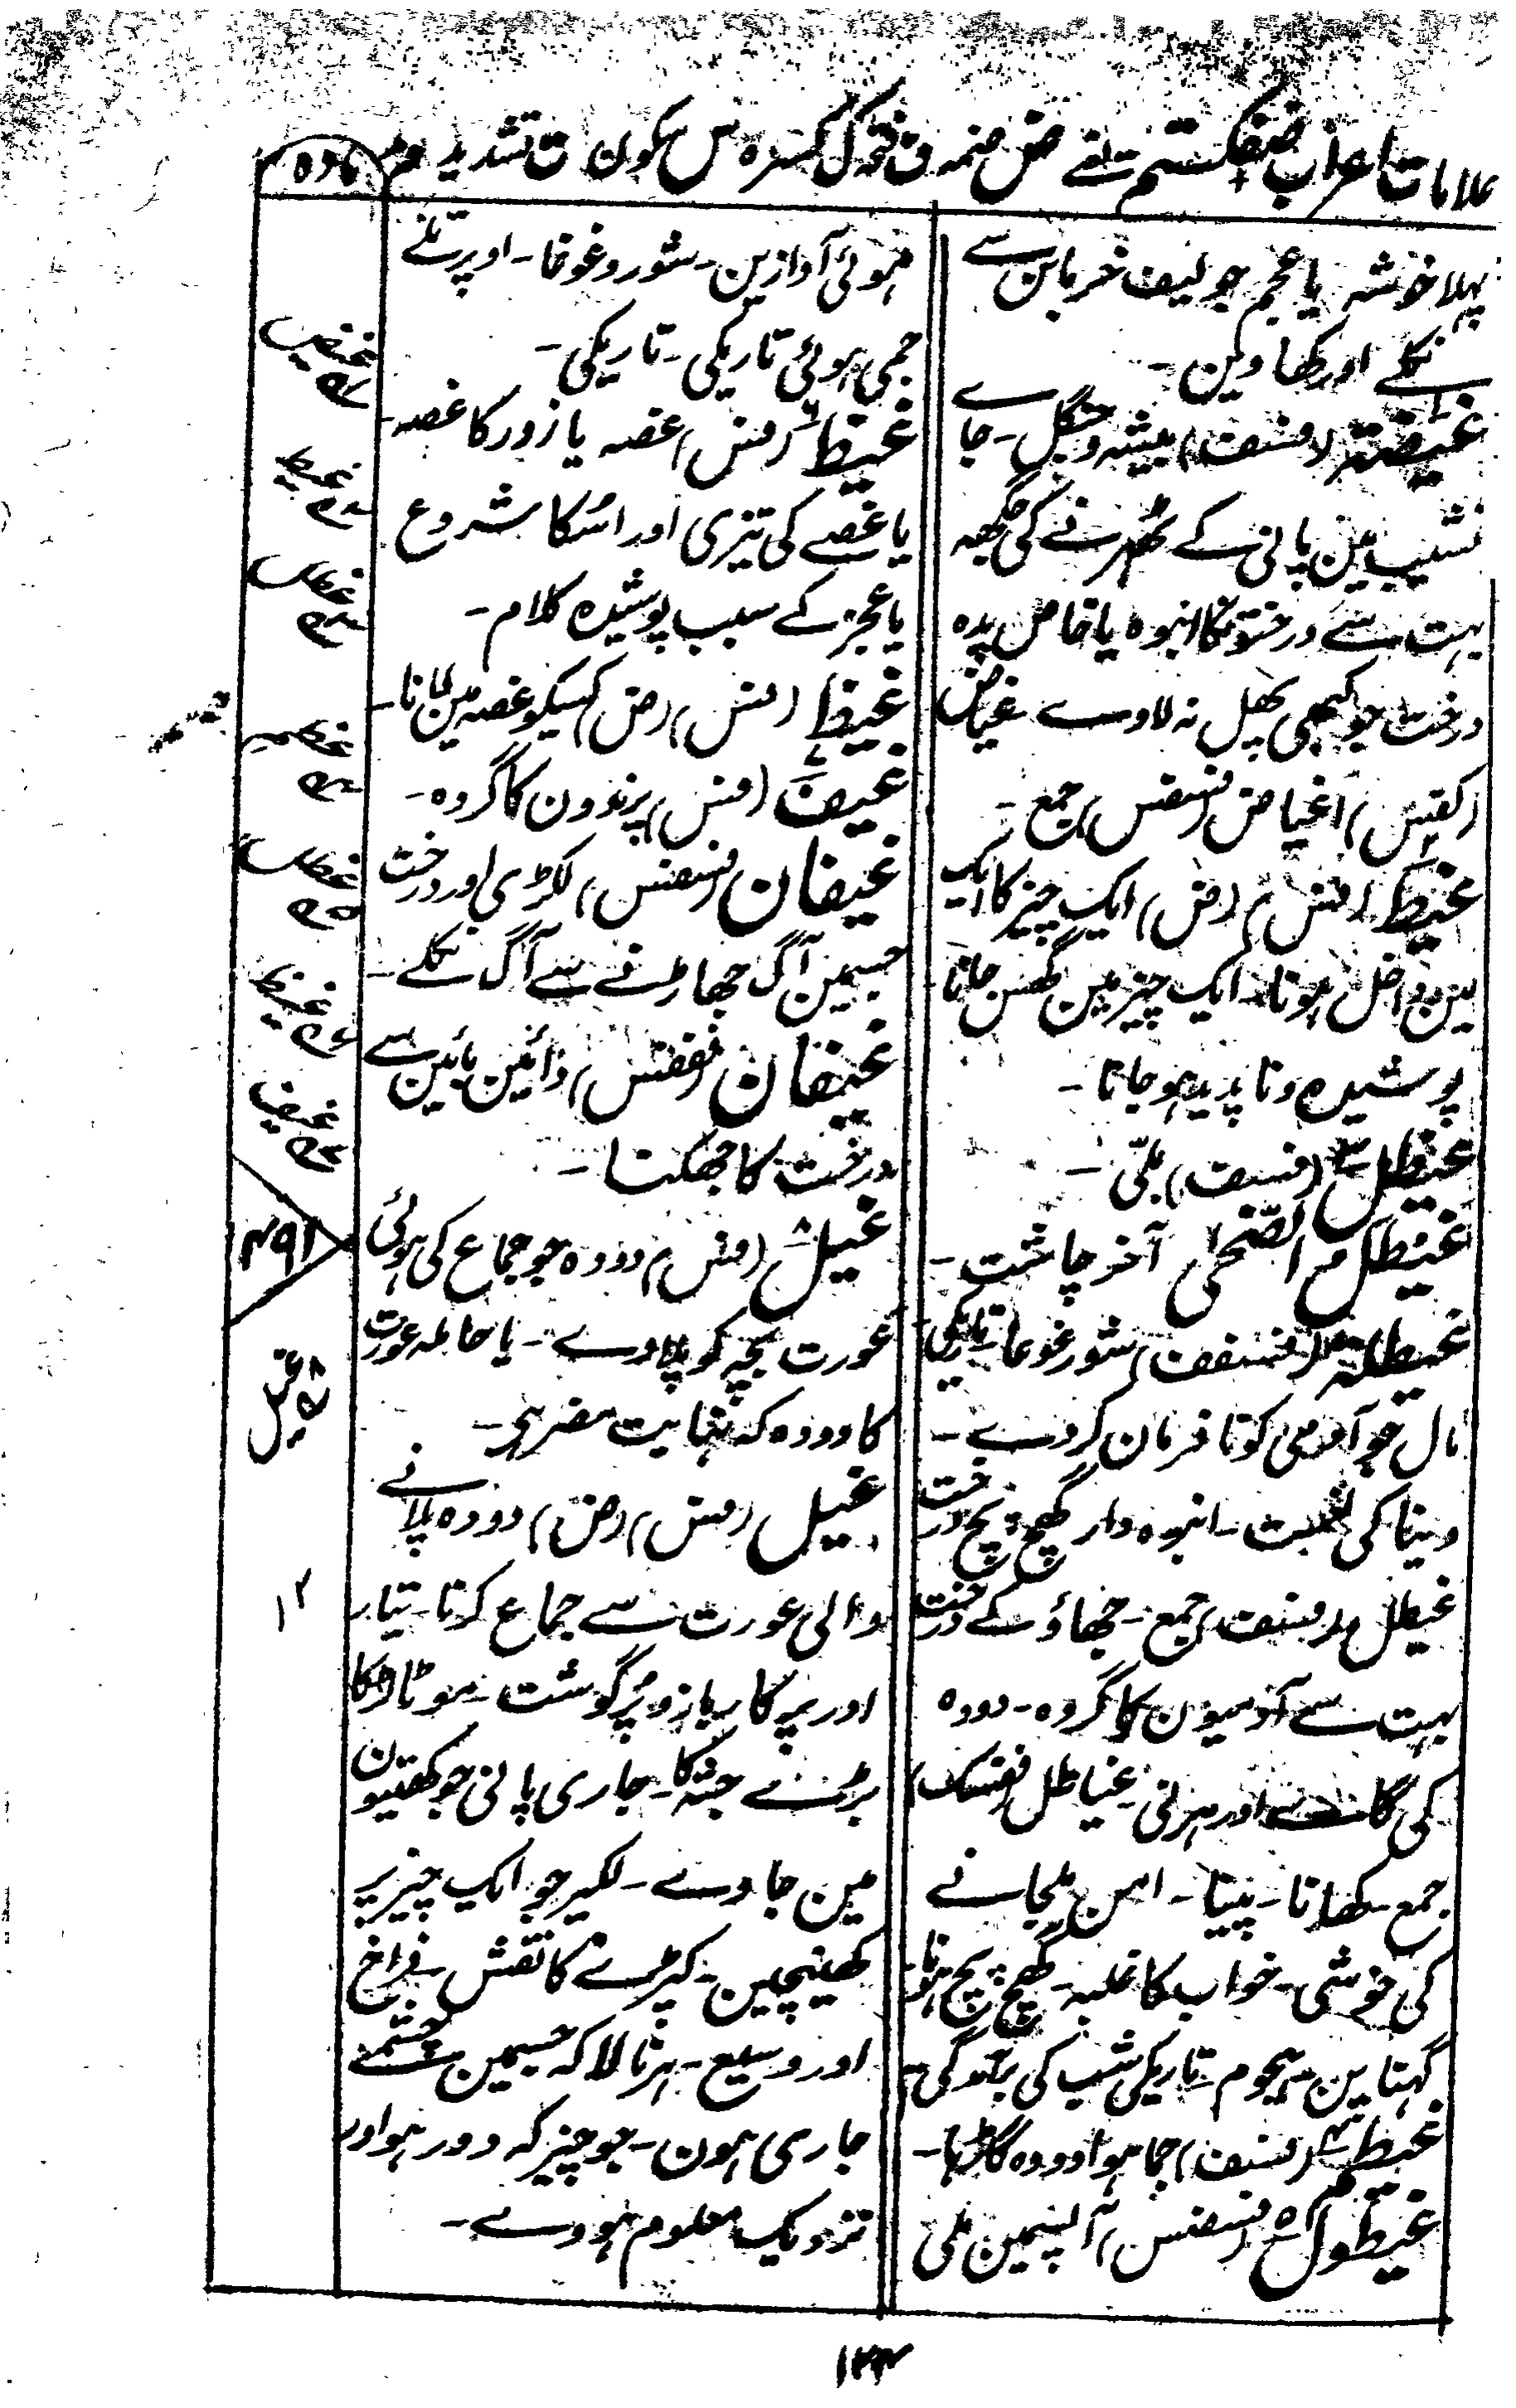 علامات اعراب ضفکستم تلے ض ضمہ ف فتحہ ک کسرہ س سکون ت تشدید م
مادہ
پہلا خوشہ یا عجم جو لیف خرما بن سے
نکلے اور کھاوین -
غیضۃ (فسف) بیشہ و جنگل - جاے
نشیب مین پانی کے ٹھہرنے کی جگھہ
بہت سے درختونکا انبوہ یا خاص پدہ
درخت جو کبھی پھل نہ لاوے غیاض
(کفس) اغیاض (فسفس) جمع -
غیط (فس) (ض) ایک چیز کا ایک
مین داخل ہونا - ایک چیز مین گھس جانا
پوشیدہ و ناپدید ہو جانا -
غیطل (فسف) بلّی -
غیطل الضّحٰی آخر چاشت -
غیطلۃ (فسفف) شور غوغا - تاریکی
مال جو آدمی کو نافرمان کر دے -
دینا کی نسبت - انبوہ دار گھچ پچ درخت
غیطل (فسف) جمع - جھاؤ کے درخت
بہت سے آدمیون کا گروہ - دودہ
کی گاے اور ہرنی غیاطل (ففسک)
جمع - کھانا - پینا - امن ملجانے
کی خوشی - خواب کا غلبہ - گھچ پچ ہونا -
گہنا پن ہجوم - تاریکی شب کی پراگندگی -
غیطم (فسف) جما ہوا دودہ گاڑہا -
غیطول (فسفس) آپسمین ملی
ہوئی آوازین - شور و غوغا - اوپر تلے
جمی ہوئی تاریکی - تاریکی -
غیظ (فس) غصہ یا زور کا غصہ -
یا غصے کی تیزی اور اسکا شروع
یا عجز کے سبب پوشیدہ کلام -
غیظ (فس) (ض) کسیکو غصہ مین لانا -
غیف (فس) پرندون کا گروہ -
غیفان (فسفس) لکڑی اور درخت
جسمین آگ جھاڑنے سے آگ نکلے -
غیفان (فففس) دائین بائین سے
درخت کا جھکنا -
غیل (فس) دودہ جو جماع کی ہوئی
عورت بچہ کو پلاوے - یا حاملہ عورت
کا دودہ کہ نہایت مضر ہی -
غیل (فس) (ض) دودہ پلانے
والی عورت سے جماع کرنا - تیار
اور پر کار بازو پُر گوشت - موٹا لڑکا
بڑے جثہ کا - جاری پانی جو کھیتیون
مین جاوے - لکیر جو ایک چیز پر
کھینچین - کپڑے کا نقش - فراخ
اور وسیع - ہر نالا کہ جسمین چشمے
جاری ہون - جو چیز کہ دور ہو اور
نزدیک معلوم ہووے -
غیض
غیط
غیظ
غیف
غیل
۱۲